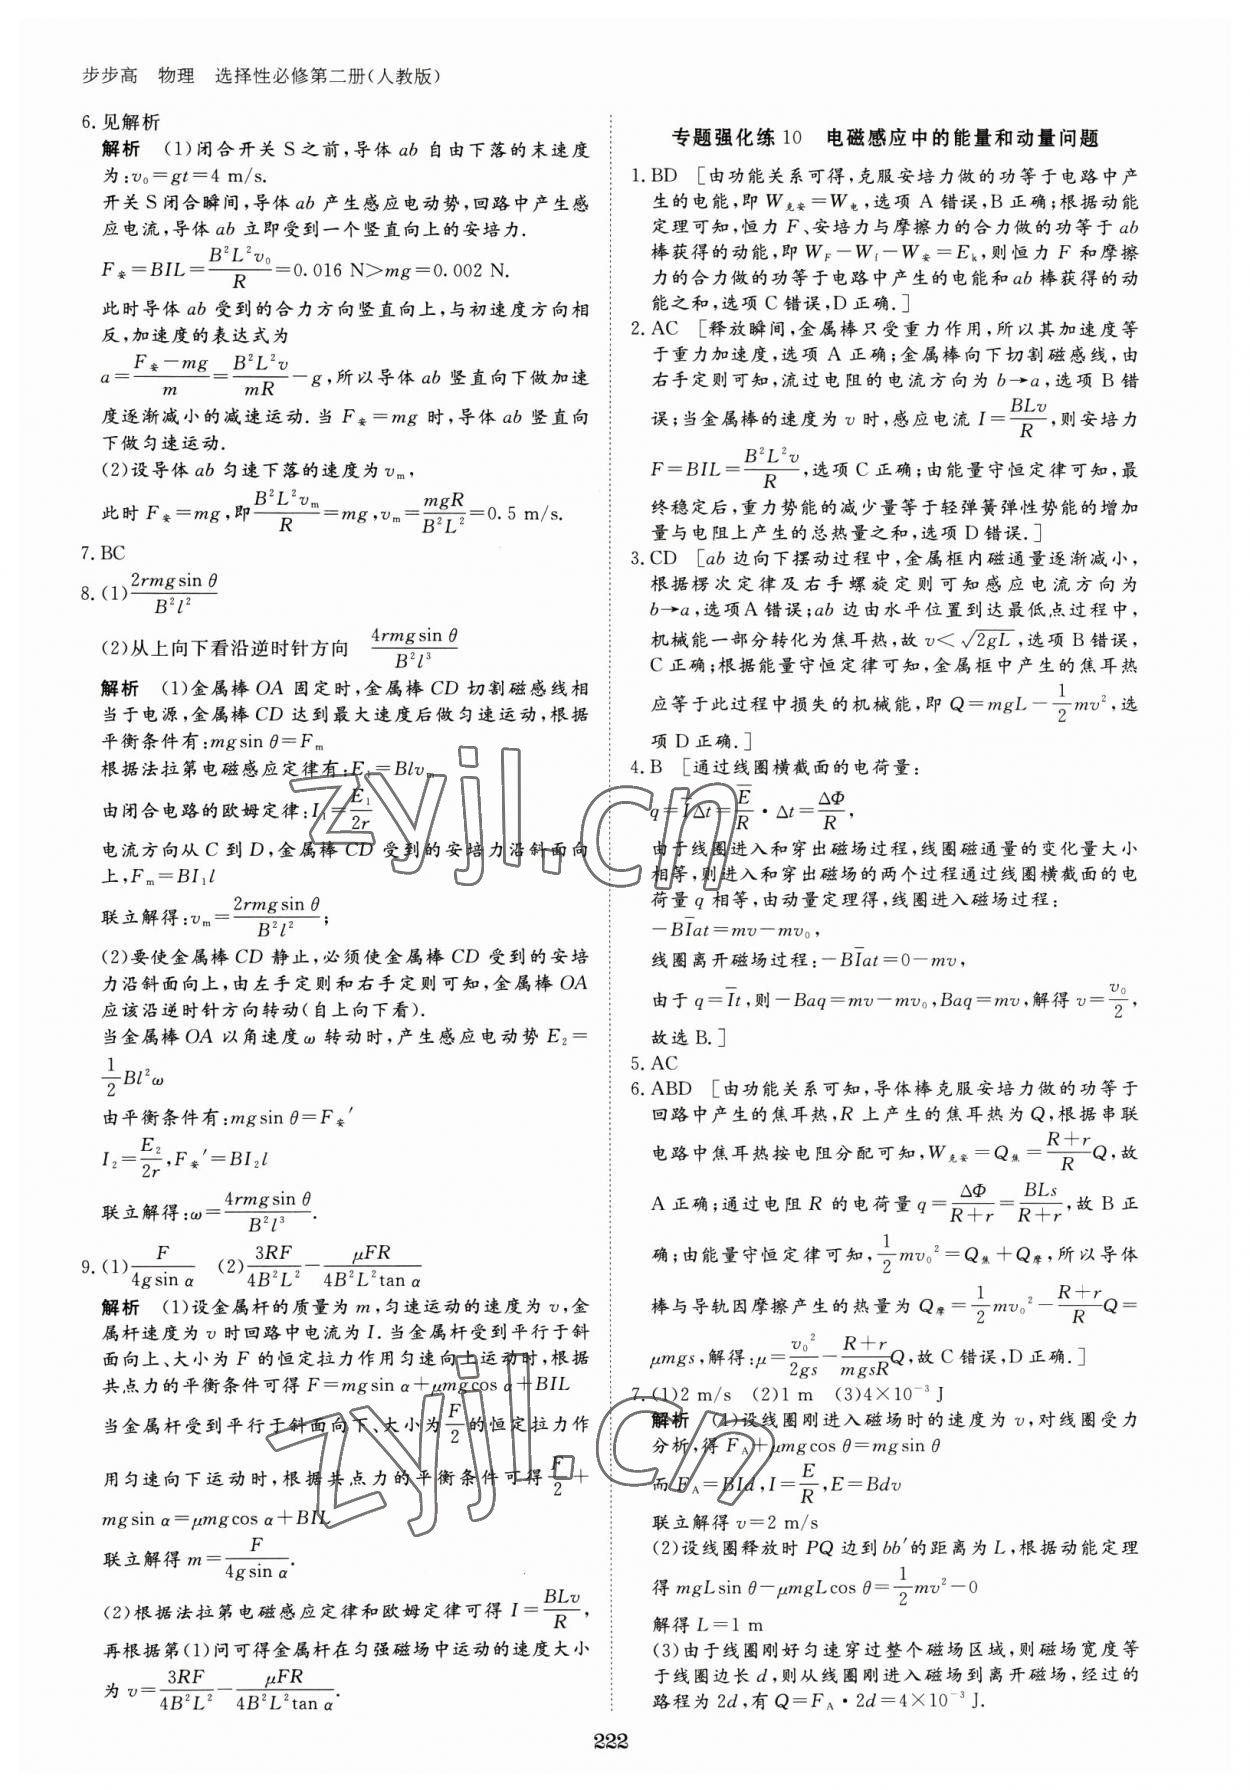 步步高　物理　选择性必修第二册(人教版)
6.见解析
解析　(1)闭合开关S之前,导体ab自由下落的末速度
为:v₀=gt=4 m/s.
开关S闭合瞬间,导体ab产生感应电动势,回路中产生感
应电流,导体ab立即受到一个竖直向上的安培力.
F安=BIL=B²L²v₀/R=0.016 N>mg=0.002 N.
此时导体ab受到的合力方向竖直向上,与初速度方向相
反,加速度的表达式为
a=(F安-mg)/m=B²L²v/mR-g,所以导体ab竖直向下做加速
度逐渐减小的减速运动.当F安=mg时,导体ab竖直向
下做匀速运动.
(2)设导体ab匀速下落的速度为vₘ,
此时F安=mg,即B²L²vₘ/R=mg,vₘ=mgR/B²L²=0.5 m/s.
7.BC
8.(1)2rmgsin θ/B²l²
(2)从上向下看沿逆时针方向　4rmgsin θ/B²l³
解析　(1)金属棒OA固定时,金属棒CD切割磁感线相
当于电源,金属棒CD达到最大速度后做匀速运动,根据
平衡条件有:mgsin θ=Fₘ
根据法拉第电磁感应定律有:E₁=Blvₘ
由闭合电路的欧姆定律:I₁=E₁/2r
电流方向从C到D,金属棒CD受到的安培力沿斜面向
上,Fₘ=BI₁l
联立解得:vₘ=2rmgsin θ/B²l²;
(2)要使金属棒CD静止,必须使金属棒CD受到的安培
力沿斜面向上,由左手定则和右手定则可知,金属棒OA
应该沿逆时针方向转动(自上向下看).
当金属棒OA以角速度ω转动时,产生感应电动势E₂=
1/2 Bl²ω
由平衡条件有:mgsin θ=F安′
I₂=E₂/2r,F安′=BI₂l
联立解得:ω=4rmgsin θ/B²l³.
9.(1)F/4gsin α　(2)3RF/4B²L²-μFR/4B²L²tan α
解析　(1)设金属杆的质量为m,匀速运动的速度为v,金
属杆速度为v时回路中电流为I.当金属杆受到平行于斜
面向上、大小为F的恒定拉力作用匀速向上运动时,根据
共点力的平衡条件可得F=mgsin α+μmgcos α+BIL
当金属杆受到平行于斜面向下、大小为F/2的恒定拉力作
用匀速向下运动时,根据共点力的平衡条件可得F/2+
mgsin α=μmgcos α+BIL
联立解得m=F/4gsin α.
(2)根据法拉第电磁感应定律和欧姆定律可得I=BLv/R,
再根据第(1)问可得金属杆在匀强磁场中运动的速度大小
为v=3RF/4B²L²-μFR/4B²L²tan α.
专题强化练10　电磁感应中的能量和动量问题
1.BD　[由功能关系可得,克服安培力做的功等于电路中产
生的电能,即W克安=W电,选项A错误,B正确;根据动能
定理可知,恒力F、安培力与摩擦力的合力做的功等于ab
棒获得的动能,即W_F-W_f-W安=E_k,则恒力F和摩擦
力的合力做的功等于电路中产生的电能和ab棒获得的动
能之和,选项C错误,D正确.]
2.AC　[释放瞬间,金属棒只受重力作用,所以其加速度等
于重力加速度,选项A正确;金属棒向下切割磁感线,由
右手定则可知,流过电阻的电流方向为b→a,选项B错
误;当金属棒的速度为v时,感应电流I=BLv/R,则安培力
F=BIL=B²L²v/R,选项C正确;由能量守恒定律可知,最
终稳定后,重力势能的减少量等于轻弹簧弹性势能的增加
量与电阻上产生的总热量之和,选项D错误.]
3.CD　[ab边向下摆动过程中,金属框内磁通量逐渐减小,
根据楞次定律及右手螺旋定则可知感应电流方向为
b→a,选项A错误;ab边由水平位置到达最低点过程中,
机械能一部分转化为焦耳热,故v<√2gL,选项B错误,
C正确;根据能量守恒定律可知,金属框中产生的焦耳热
应等于此过程中损失的机械能,即Q=mgL-1/2 mv²,选
项D正确.]
4.B　[通过线圈横截面的电荷量:
q=I̅Δt=E̅/R·Δt=ΔΦ/R,
由于线圈进入和穿出磁场过程,线圈磁通量的变化量大小
相等,则进入和穿出磁场的两个过程通过线圈横截面的电
荷量q相等,由动量定理得,线圈进入磁场过程:
-BI̅at=mv-mv₀,
线圈离开磁场过程:-BI̅at=0-mv,
由于q=I̅t,则-Baq=mv-mv₀,Baq=mv,解得v=v₀/2,
故选B.]
5.AC
6.ABD　[由功能关系可知,导体棒克服安培力做的功等于
回路中产生的焦耳热,R上产生的焦耳热为Q,根据串联
电路中焦耳热按电阻分配可知,W克安=Q焦=(R+r)/R Q,故
A正确;通过电阻R的电荷量q=ΔΦ/(R+r)=BLs/(R+r),故B正
确;由能量守恒定律可知,1/2 mv₀²=Q焦+Q摩,所以导体
棒与导轨因摩擦产生的热量为Q摩=1/2 mv₀²-(R+r)/R Q=
μmgs,解得:μ=v₀²/2gs-(R+r)/mgsR Q,故C错误,D正确.]
7.(1)2 m/s　(2)1 m　(3)4×10⁻³ J
解析　(1)设线圈刚进入磁场时的速度为v,对线圈受力
分析,得F_A+μmgcos θ=mgsin θ
而F_A=BId,I=E/R,E=Bdv
联立解得v=2 m/s
(2)设线圈释放时PQ边到bb′的距离为L,根据动能定理
得mgLsin θ-μmgLcos θ=1/2 mv²-0
解得L=1 m
(3)由于线圈刚好匀速穿过整个磁场区域,则磁场宽度等
于线圈边长d,则从线圈刚进入磁场到离开磁场,经过的
路程为2d,有Q=F_A·2d=4×10⁻³ J.
222
zyjl.cn
zyjl.cn